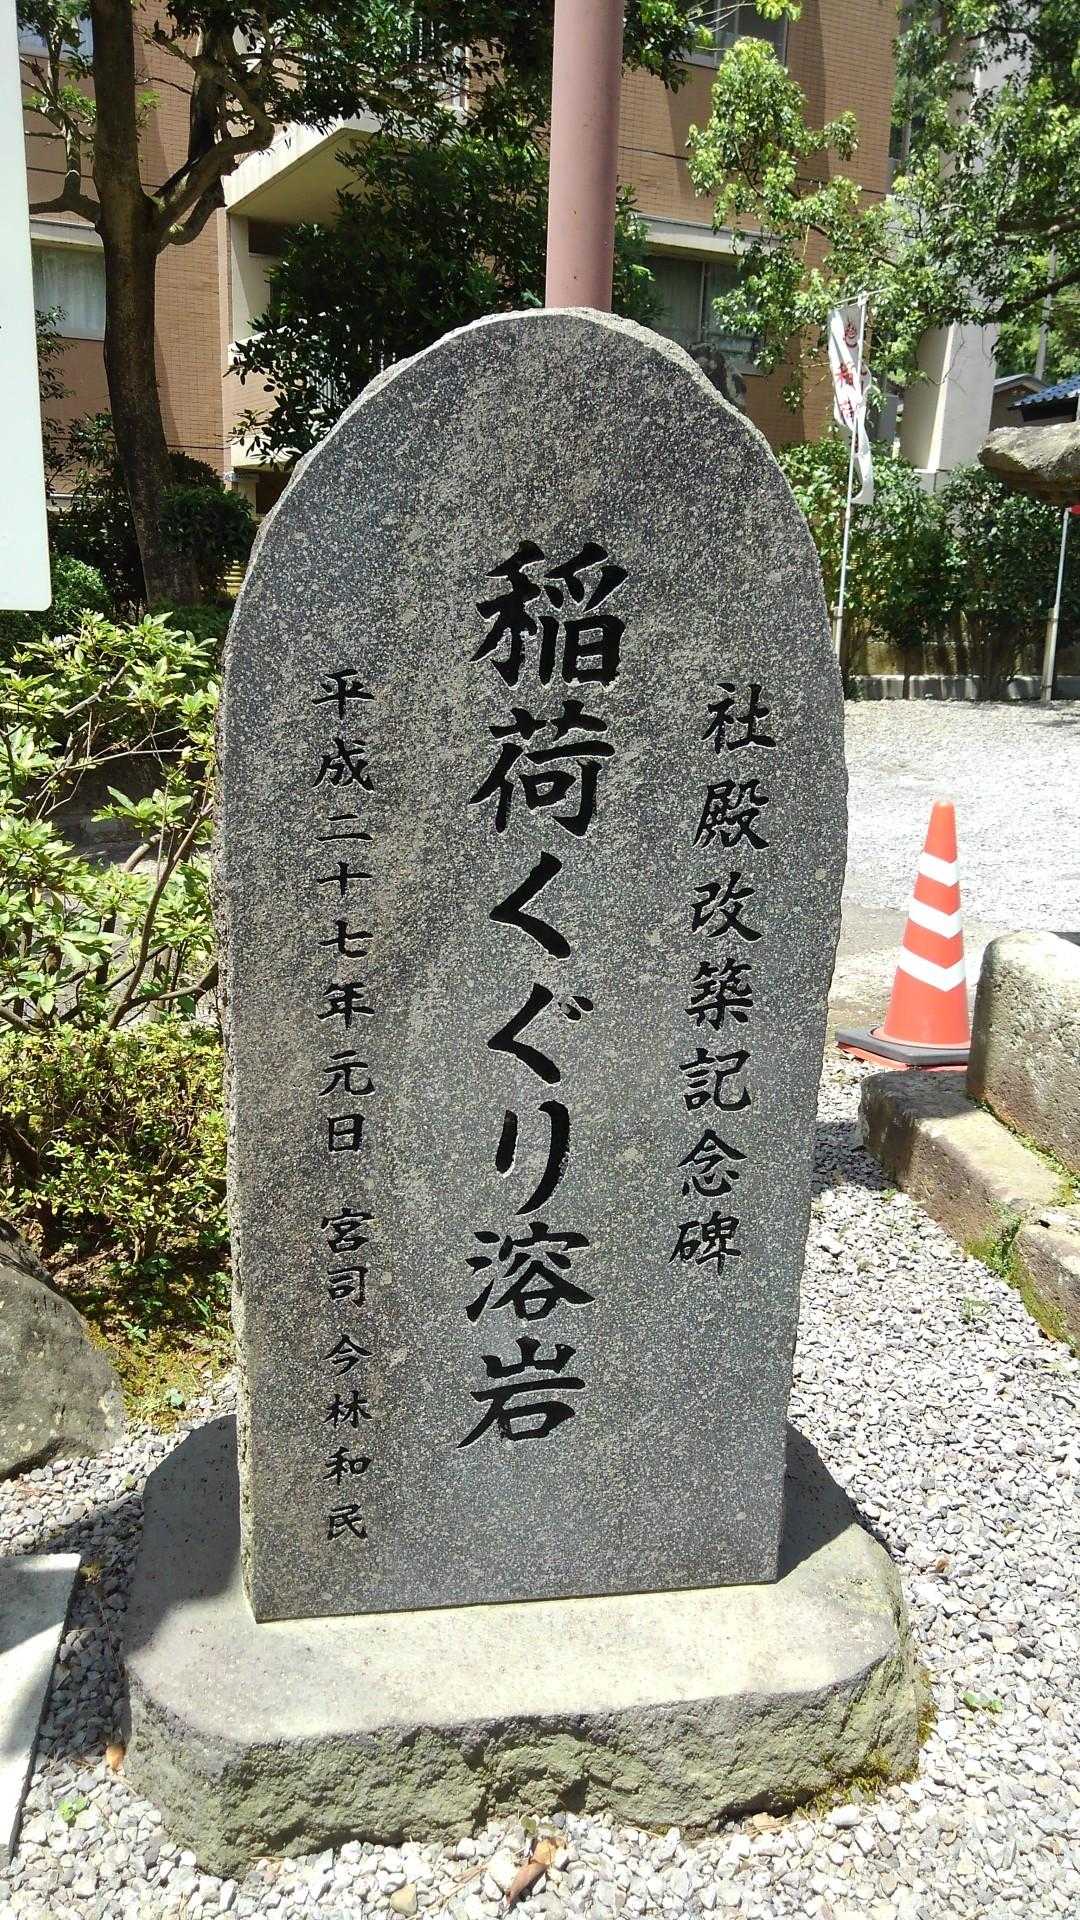 社殿改築記念碑
稲荷くぐり溶岩
平成二十七年元日 宮司 今林和民